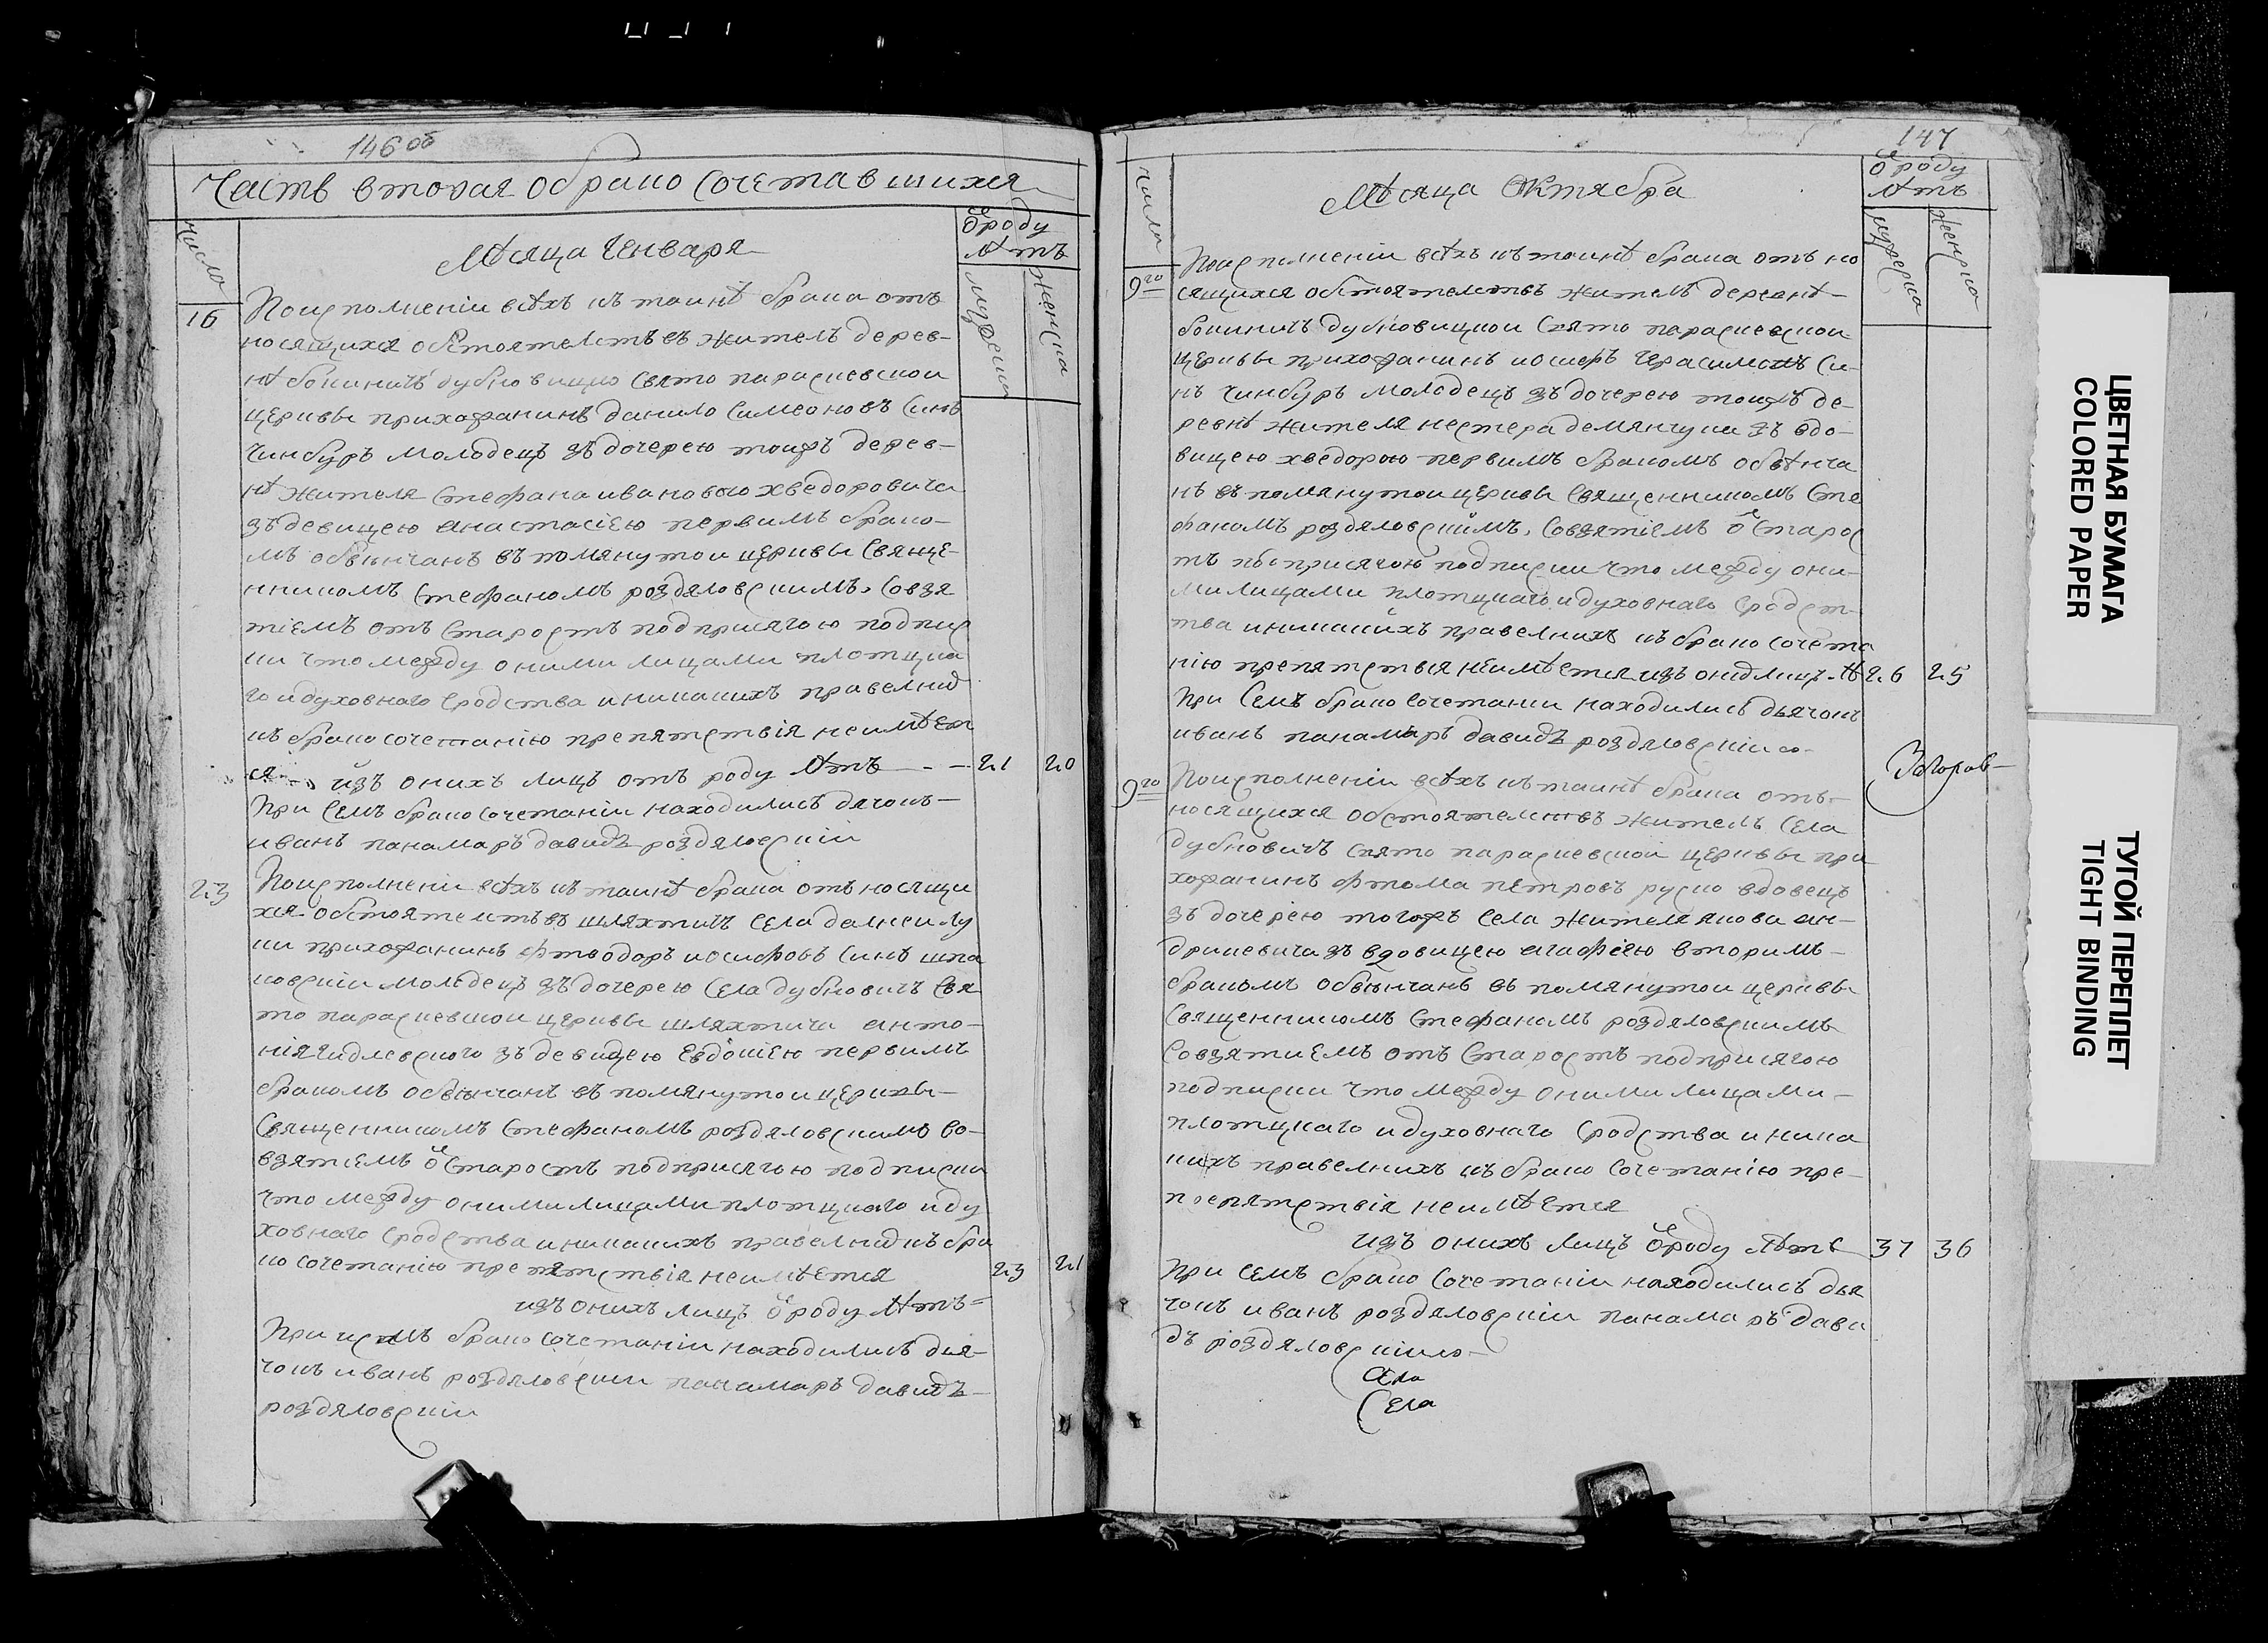 146 об
Часть вторая обрако сочетавшихся
числа
Мѣсяца Генваря
ѿ роду
лѣтъ
мужеска
женска
16
Поисполненіи всѣхъ къ таинѣ брака отъ
носящихся обстоятелствъ житель дерев-
нѣ бокиничъ дубновицко свято параскевской
церквы прихожанинъ данило симеоновъ синъ
чинбуръ молодецъ зъ дочерею тоижъ дерев-
нѣ жителя стефана ивановою хведоровича
зъ девицею анастасіею первимъ брако-
мъ обвѣнчанъ въ помянутои церквы свяще-
нникомъ стефаномъ роздяловскимъ, совзя
тіемъ отъ старостъ подприсягою подпис
ки что между оними лицами плотцка
го идуховнаго сродства иникакихъ правелних
къ брако сочетанію препятствія неимѣет
ся изъ онихъ лицъ отъ роду лѣтъ 21 20
При семъ брако сочетаніи находились дячокъ
иванъ панамаръ давидъ роздяловскіи
23
Поисполненіи всѣхъ къ таинѣ брака отъ носящи
хся обстоятелствъ шляхтичъ села далнеи лу
ки прихожанинъ фтеодоръ иосифовъ синъ шпа
ковскіи молодецъ зъ дочерею села дубновичъ свя
то параскевскои церквы шляхтича анто-
нія гидлевского зъ девицею евдокіею первимъ
бракомъ обвѣнчанъ въ помянутои церквы
священникомъ стефаномъ роздяловскимъ со-
взятіемъ ѿ старостъ подприсягою подписки
что между оними лицами плотцкаго иду
ховнаго сродства иникакихъ правелних къ бра
ко сочетанію препятствія неимѣется 23 21
изъ онихъ лицъ ѿ роду лѣтъ
При семъ брако сочетаніи находились дья-
чокъ иванъ роздяловскіи панамаръ давидъ
роздяловскіи
147
числа
Мѣсяца Октября
ѿ роду
лѣтъ
мужеска
женска
9го
Поисполненіи всѣхъ къ таинѣ брака отъ но
сящихся обстоятелствъ житель деревнѣ
бокиничъ дубновицкои свято параскевскои
церквы прихожанинъ иосифъ герасимовъ си-
нъ чинбуръ молодецъ зъ дочерею тоижъ де-
ревнѣ жителя нестера демянчука зъ вдо-
вицею хведорою первимъ бракомъ обвѣнча
нъ въ помянутои церквы священникомъ сте
фаномъ роздяловскимъ, совзятіемъ ѿ старос
тъ подприсягою подписки что между они-
ми лицами плотцкаго идуховнаго сродст-
тва иникакихъ правелнихъ къ брако сочета
нію препятствія неимѣется изъ онихъ лицъ лѣ 26 25
При семъ брако сочетаніи находились дьячокъ
иванъ панамаръ давидъ роздяловскіи
9го
Поисполненіи всѣхъ къ таинѣ брака отъ-
носящихся обстоятелствъ житель села
дубновичъ свято параскевской церквы при
хожанинъ фтома петровъ руско вдовецъ
зъ дочерію тогожъ села жителя якова ан-
дриевича зъ вдовицею агафіею вторимъ
бракомъ обвѣнчанъ въ помянутои церквы
священникомъ стефаномъ роздяловскимъ
совзятиемъ отъ старостъ подприсягою
подписки что между оними лицами
плотцкаго идуховнаго сродства иника
кихъ правелнихъ къ брако сочетанію пре-
поепятствія неимѣется
изъ онихъ лицъ ѿ роду лѣтъ 37 36
При семъ брако сочетаніи находились дья
чокъ иванъ роздяловскіи панамаръ дави
дъ роздяловскіи
Села
Села
ЦВЕТНАЯ БУМАГА
COLORED PAPER
ТУГОЙ ПЕРЕПЛЕТ
TIGHT BINDING